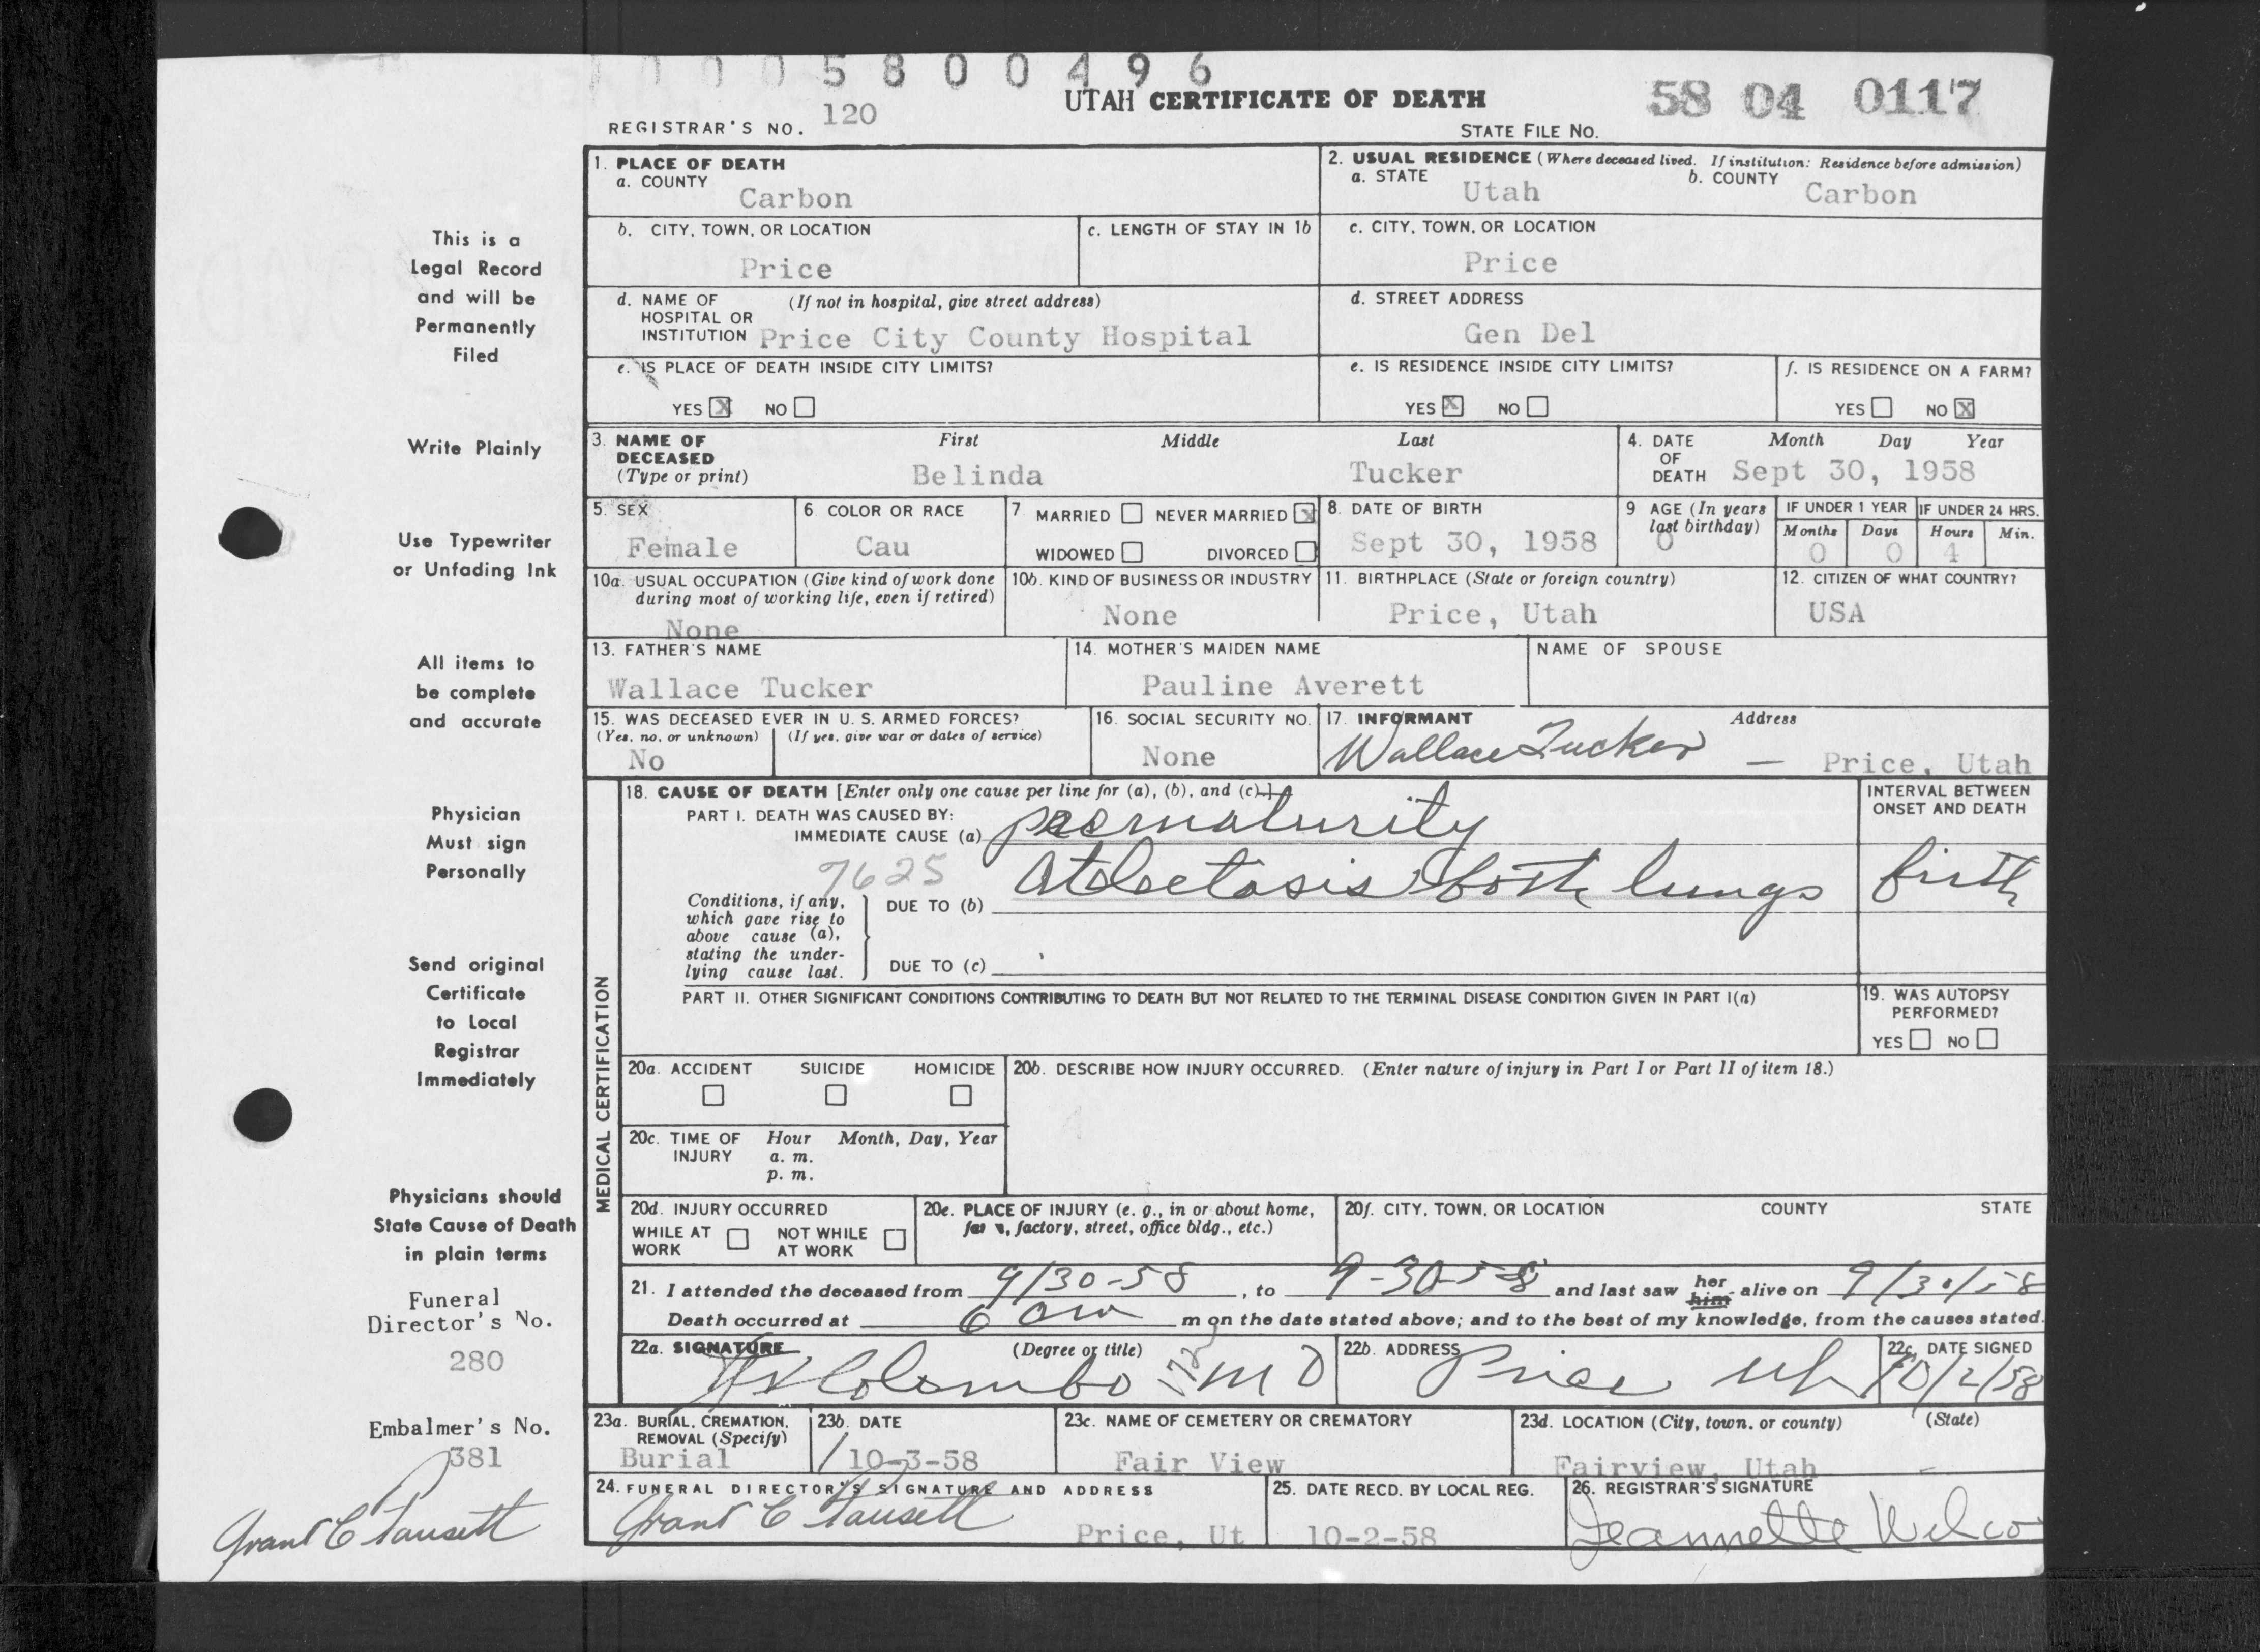 0 0 0 5 8 0 0 4 9 6
UTAH CERTIFICATE OF DEATH
58 04 0117
REGISTRAR'S NO. 120
STATE FILE NO.
1. PLACE OF DEATH
a. COUNTY
Carbon
2. USUAL RESIDENCE (Where deceased lived. If institution: Residence before admission)
a. STATE Utah b. COUNTY Carbon
b. CITY, TOWN, OR LOCATION
Price
c. LENGTH OF STAY IN 1b
c. CITY, TOWN, OR LOCATION
Price
d. NAME OF HOSPITAL OR INSTITUTION (If not in hospital, give street address)
Price City County Hospital
d. STREET ADDRESS
Gen Del
e. IS PLACE OF DEATH INSIDE CITY LIMITS?
YES X NO
e. IS RESIDENCE INSIDE CITY LIMITS?
YES X NO
f. IS RESIDENCE ON A FARM?
YES NO X
3. NAME OF DECEASED (Type or print)
First Middle Last
Belinda Tucker
4. DATE OF DEATH Month Day Year
Sept 30, 1958
5. SEX
Female
6 COLOR OR RACE
Cau
7 MARRIED NEVER MARRIED X
WIDOWED DIVORCED
8. DATE OF BIRTH
Sept 30, 1958
9 AGE (In years last birthday)
0
IF UNDER 1 YEAR IF UNDER 24 HRS.
Months Days Hours Min.
0 0 4
10a. USUAL OCCUPATION (Give kind of work done during most of working life, even if retired)
None
10b. KIND OF BUSINESS OR INDUSTRY
None
11. BIRTHPLACE (State or foreign country)
Price, Utah
12. CITIZEN OF WHAT COUNTRY?
USA
13. FATHER'S NAME
Wallace Tucker
14. MOTHER'S MAIDEN NAME
Pauline Averett
NAME OF SPOUSE
15. WAS DECEASED EVER IN U. S. ARMED FORCES?
(Yes, no, or unknown) (If yes, give war or dates of service)
No
16. SOCIAL SECURITY NO.
None
17. INFORMANT Address
Wallace Tucker — Price, Utah
MEDICAL CERTIFICATION
18. CAUSE OF DEATH [Enter only one cause per line for (a), (b), and (c).]
PART I. DEATH WAS CAUSED BY:
IMMEDIATE CAUSE (a) prematurity
INTERVAL BETWEEN ONSET AND DEATH
7625
Conditions, if any, which gave rise to above cause (a), stating the underlying cause last.
DUE TO (b) Atelectasis both lungs birth
DUE TO (c)
PART II. OTHER SIGNIFICANT CONDITIONS CONTRIBUTING TO DEATH BUT NOT RELATED TO THE TERMINAL DISEASE CONDITION GIVEN IN PART I(a)
19. WAS AUTOPSY PERFORMED?
YES NO
20a. ACCIDENT SUICIDE HOMICIDE
20b. DESCRIBE HOW INJURY OCCURRED. (Enter nature of injury in Part I or Part II of item 18.)
20c. TIME OF INJURY Hour Month, Day, Year
a. m.
p. m.
20d. INJURY OCCURRED
WHILE AT WORK NOT WHILE AT WORK
20e. PLACE OF INJURY (e. g., in or about home, farm, factory, street, office bldg., etc.)
20f. CITY, TOWN, OR LOCATION COUNTY STATE
21. I attended the deceased from 9/30-58, to 9-30-58 and last saw her him alive on 9/30/58
Death occurred at 6 am m on the date stated above; and to the best of my knowledge, from the causes stated.
22a. SIGNATURE (Degree or title)
Colombo MD
22b. ADDRESS
Price Ut
22c. DATE SIGNED
10/2/58
23a. BURIAL, CREMATION, REMOVAL (Specify)
Burial
23b. DATE
10-3-58
23c. NAME OF CEMETERY OR CREMATORY
Fair View
23d. LOCATION (City, town, or county) (State)
Fairview, Utah
24. FUNERAL DIRECTOR'S SIGNATURE AND ADDRESS
Grant C Fausett Price, Ut
25. DATE RECD. BY LOCAL REG.
10-2-58
26. REGISTRAR'S SIGNATURE
Jeannette Wilco
This is a
Legal Record
and will be
Permanently
Filed
Write Plainly
Use Typewriter
or Unfading Ink
All items to
be complete
and accurate
Physician
Must sign
Personally
Send original
Certificate
to Local
Registrar
Immediately
Physicians should
State Cause of Death
in plain terms
Funeral
Director's No.
280
Embalmer's No.
381
Grant C Fausett